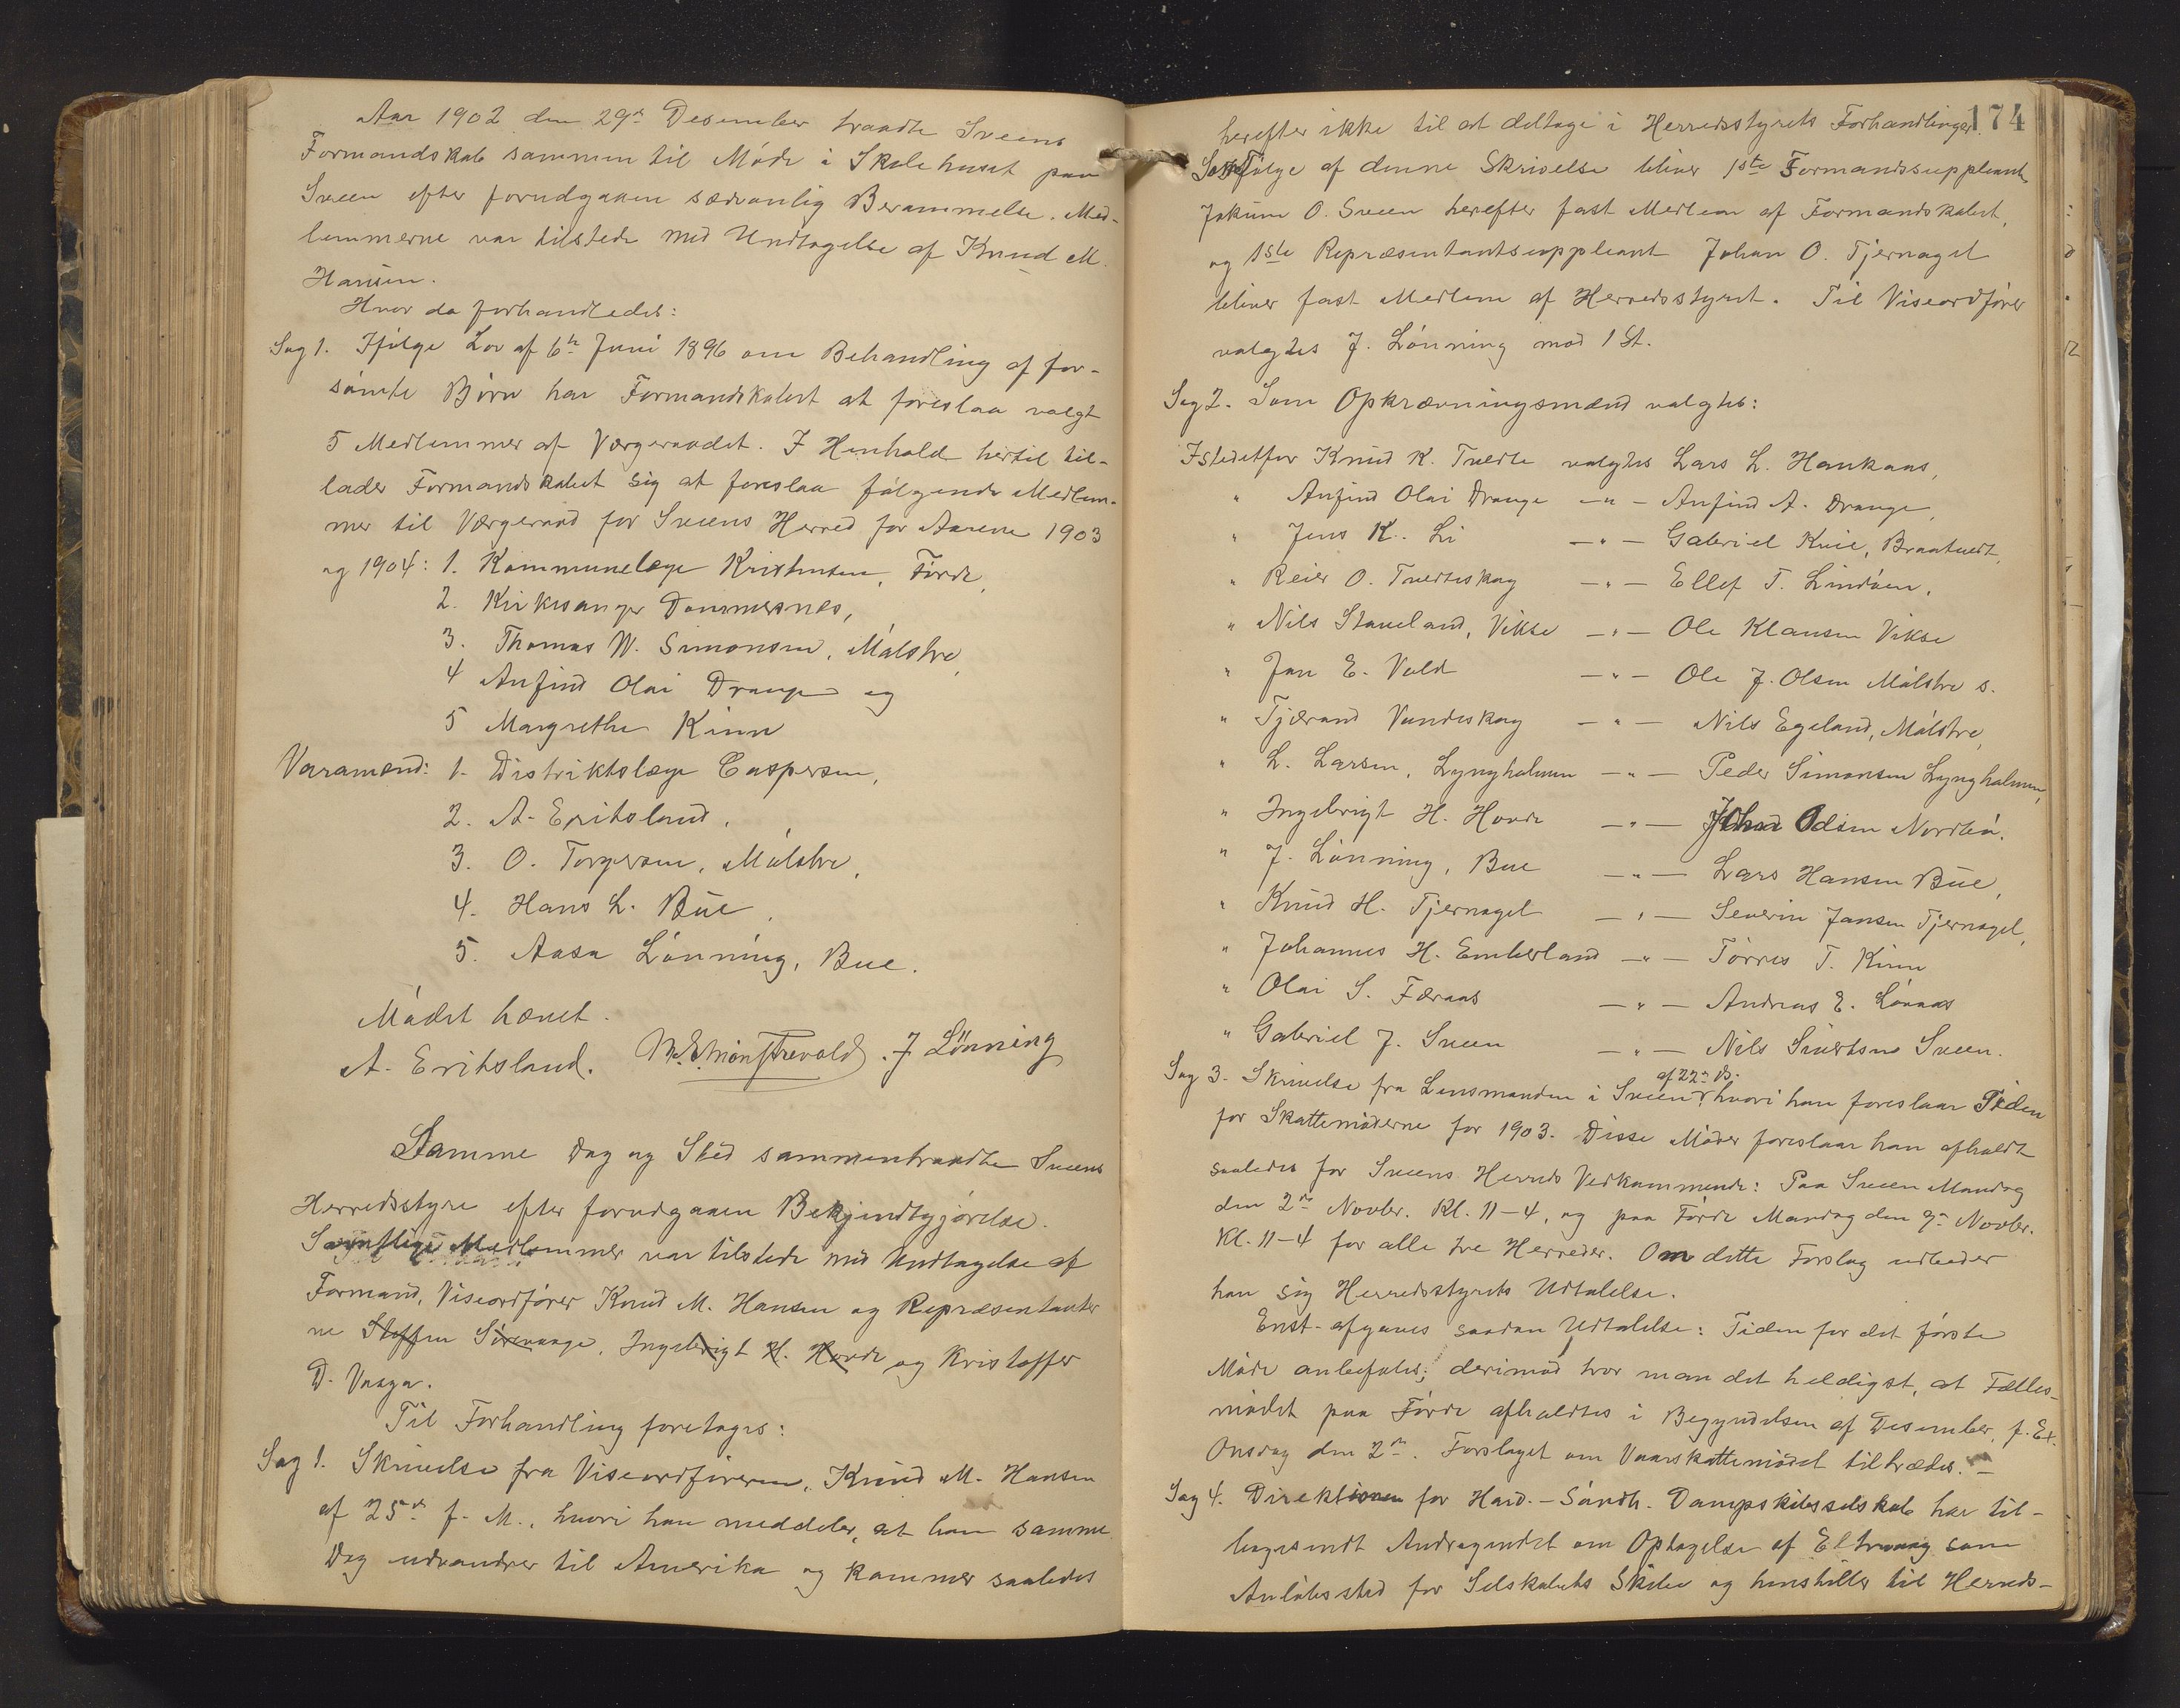 Aar 1902 den 29de Desember traadte Sveens
Formandskab sammen til Møde i Skolehuset paa
Sveen efter forudgaaen sædvanlig Berammelse. Med-
lemmerne var tilstede med Undtagelse af Knud M.
Hansen.
Hvor da forhandledes:
Sag 1. Ifølge Lov af 6te Juni 1896 om Behandling af for-
sømte Børn har Formandskabet at foreslaa valgt
5 Medlemmer af Værgeraadet. I Henhold hertil til-
lader Formandskabet sig at foreslaa følgende Medlem-
mer til Værgeraad for Sveens Herred for Aarene 1903
og 1904: 1. Kommunelæge Kristensen, Førde,
2. Kirkesanger Dommesnes,
3. Thomas W. Simonsen, Mølstre,
4 Anfind Olai Drange og
5 Margrethe Kinn
Varamænd: 1. Distriktslæge Caspersen,
2. A. Eritsland,
3. O. Torgersen, Mølstre,
4. Hans L. Bue,
5. Aasa Lønning, Bue.
Mødet hævet.
A. Eritsland. J Lønning
Samme Dag og Sted sammentraadte Sveens
Herredsstyre efter forudgaaen Bekjendtgjørelse.
Samtlige Medlemmer var tilstede med Undtagelse af
Formand, Viseordfører Knud M. Hansen og Repræsentanter
ne Steffen Sørevaage, Ingebrigt H. Hovde og Kristoffer
D. Vaage.
Til Forhandling foretoges:
Sag 1. Skrivelse fra Viseordføreren, Knud M. Hansen
af 25de f. M., hvori han meddeler, at han samme
Dag udvandrer til Amerika og kommer saaledes
174
herefter ikke til at deltage i Herredsstyrets Forhandlinger.
Som Følge af denne Skrivelse bliver 1ste Formandssuppleant
Jakum O. Sveen herefter fast Medlem af Formandskabet,
og 1ste Repræsentantsuppleant Johan O. Tjernagel
bliver fast Medlem af Herredsstyret. Til Viseordfører
valgtes J. Lønning mod 1 St.
Sag 2. Som Opkrævningsmænd valgtes:
Istedetfor Knud K. Tvedte valgtes Lars L. Haukaas,
" Anfind Olai Drange —"— Anfind A. Drange,
" Jens K. Li —"— Gabriel Knie, Braatvedt,
" Reier O. Tvedteskog —"— Ellef T. Lindøen,
" Nils Staveland, Vikse —"— Ole Klausen Vikse
" Jan E. Vold —"— Ole J. Olsen Mølstre s.
" Tjærand Vandeskog —"— Nils Egeland, Mølstre,
" L. Larsen, Lyngholmen —"— Peder Simonsen Lyngholmen,
" Ingebrigt H. Hovde —"— Johan Odsen Nordbø.
" J. Lønning, Bue —"— Lars Hansen Bue,
" Knud H. Tjernagel —"— Severin Jansen Tjernagel,
" Johannes H. Emberland —"— Tørres T. Kinn
" Olai S. Færaas —"— Andreas E. Lønaas
" Gabriel J. Sveen —"— Nils Sivertsen Sveen.
af 22de ds.
Sag 3. Skrivelse fra Lensmanden i Sveen, hvori han foreslaar Tiden
for Skattemøderne for 1903. Disse Møder foreslaar han afholdt
saaledes for Sveens Herreds Vedkommende: Paa Sveen Mandag
den 2de Novbr. Kl. 11—4, og paa Førde Mandag den 9de Novbr.
Kl. 11—4 for alle tre Herreder. Om dette Forslag udbeder
han sig Herredsstyrets Udtalelse.
Enst. afgaves saadan Udtalelse: Tiden for det første
Møde anbefales; derimod tror man det heldigst, at Fælles-
mødet paa Førde afholdtes i Begyndelsen af Desember, f. Ex.
Onsdag den 2de. Forslaget om Vaarskattemødet tiltrædes.—
Sag 4. Direktionen for Hard.-Søndh. Dampskibsselskab har til-
bagesendt Andragendet om Optagelse af Eltravaag som
Anløbssted for Selskabets Skibe og henstiller til Herreds-